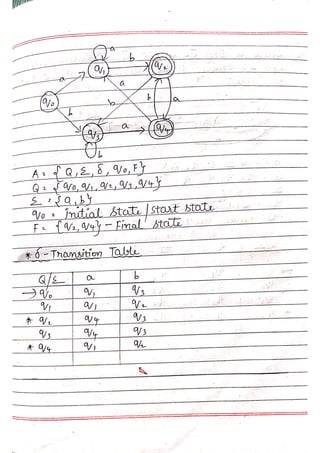 a
q1 b q2
a
q0 a b b a
b
q3 a q4
b
A = {Q, Σ, δ, q0, F}
Q = {q0, q1, q2, q3, q4}
Σ = {a, b}
q0 = Initial State / Start state
F = {q2, q4} - Final State
* δ - Transition Table
Q/Σ a b
→ q0 q1 q3
q1 q1 q2
* q2 q4 q3
q3 q4 q3
* q4 q1 q2